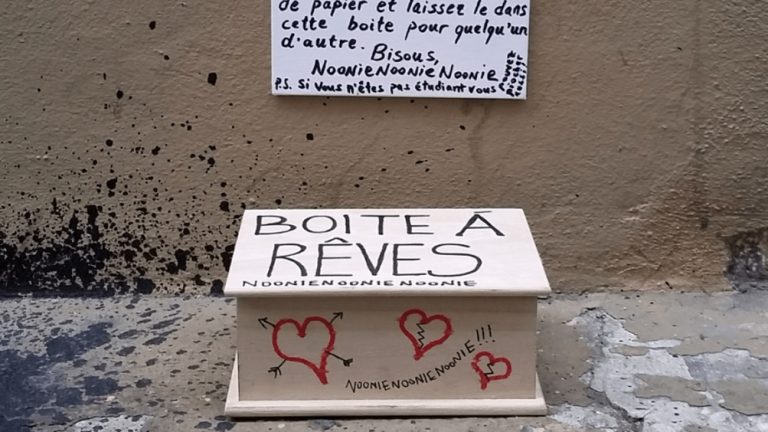 de papier et laissez le dans
cette boite pour quelqu'un
d'autre. Bisous,
NOONIENOONIENOONIE
P.S. Si vous n'êtes pas étudiant vous
pouvez
BOITE À
RÊVES
NOONIENOONIENOONIE
NOONIENOONIENOONIE!!!